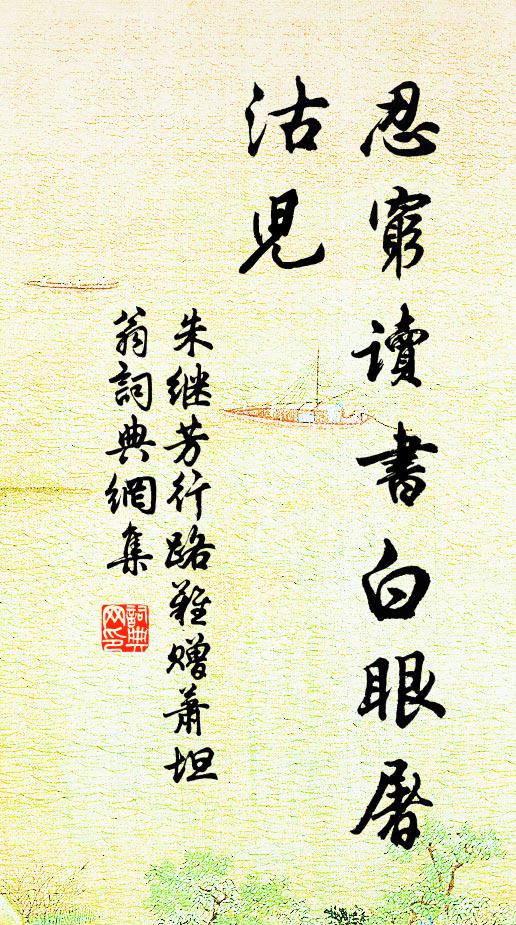 忍窮讀書白眼屠
沽児
朱继芳行路難赠蕭坦
翁詞典網集
詞典网印